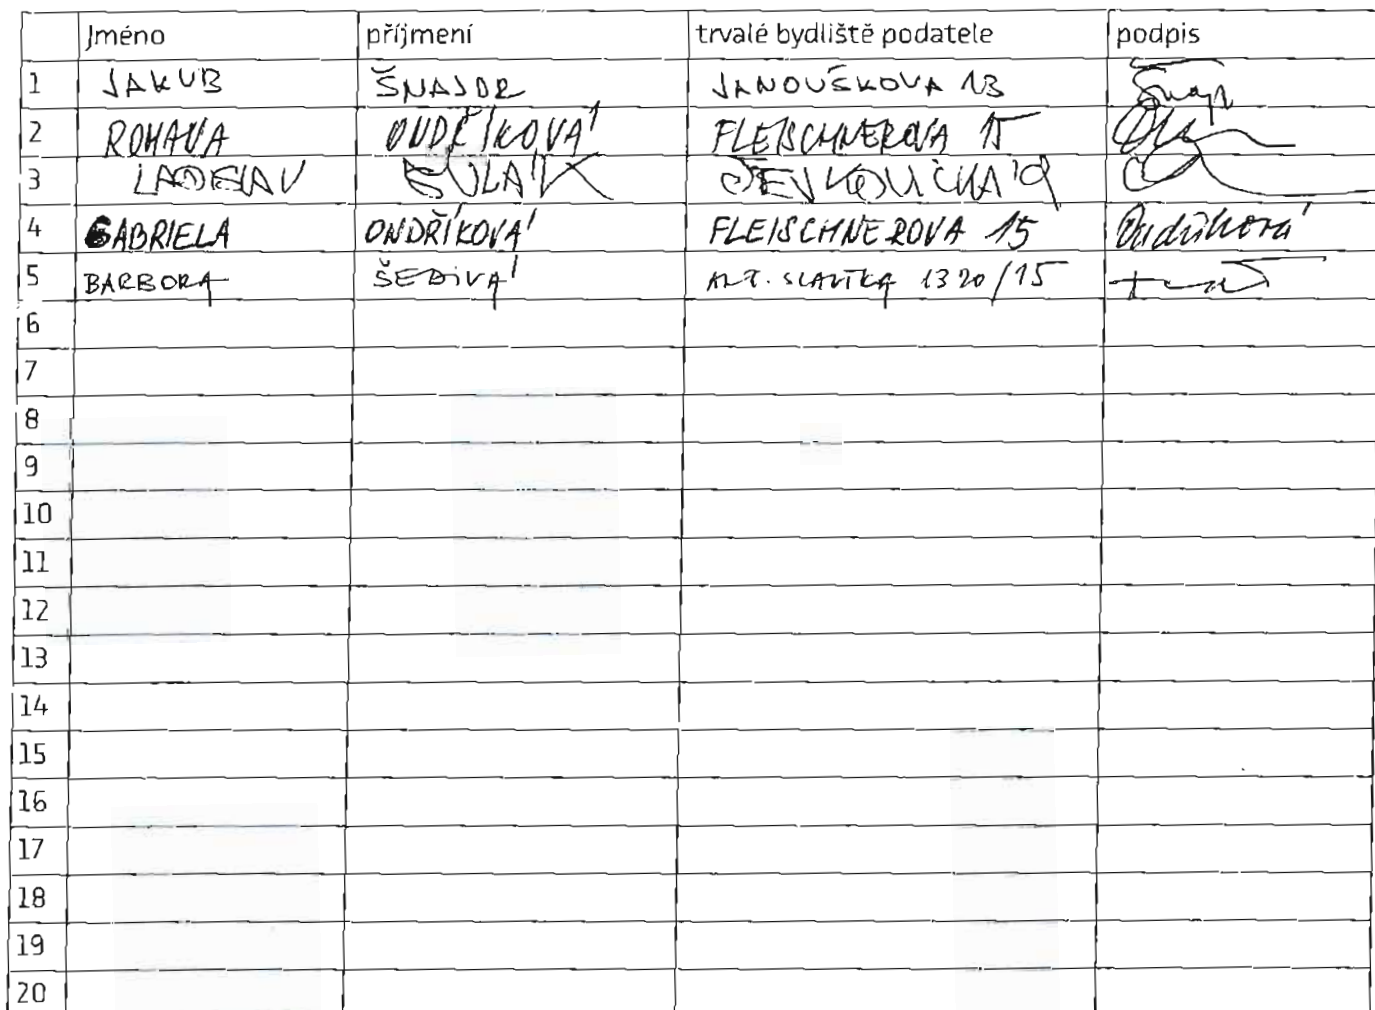 Jméno příjmení trvalé bydliště podatele podpis
1 JAKUB ŠNAJDR JANOUŠKOVA 13
2 ROMANA ONDŘÍKOVÁ FLEISCHNEROVA 15
3 LADISLAV ŠULÁK
4 GABRIELA ONDŘÍKOVÁ FLEISCHNEROVA 15 Ondříková
5 BARBORA ŠEDIVÁ ANT. SLAVÍKA 1320/15
6
7
8
9
10
11
12
13
14
15
16
17
18
19
20